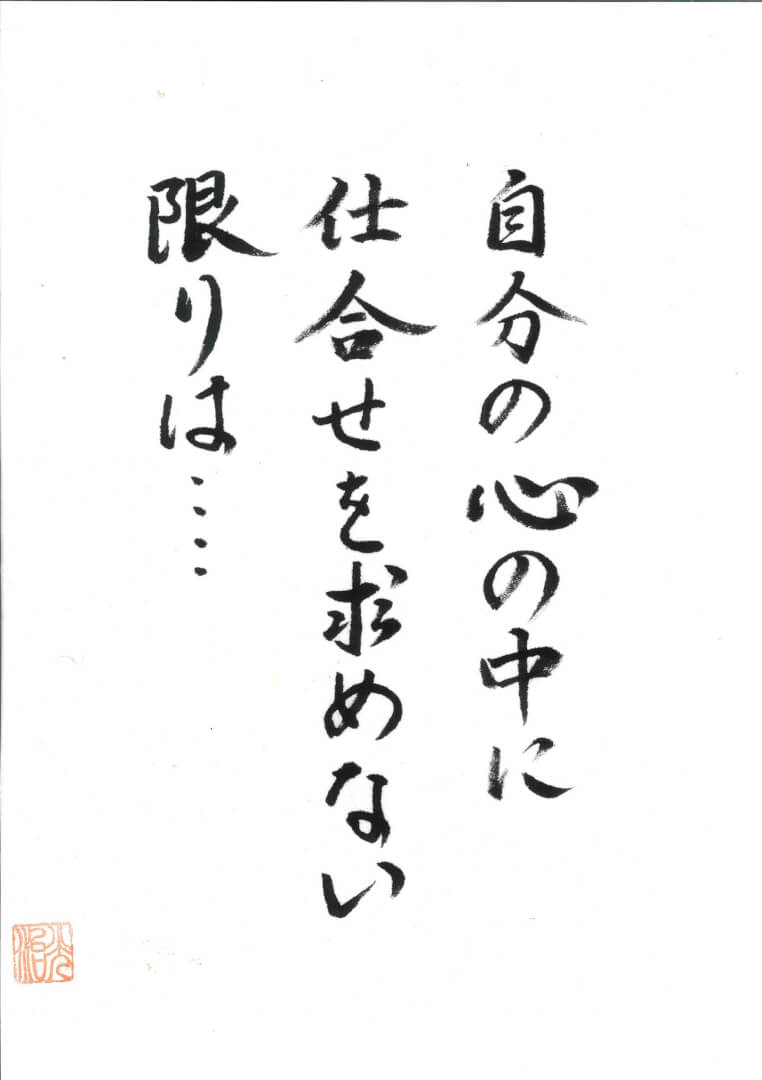 自分の心の中に
仕合せを求めない
限りは‥‥